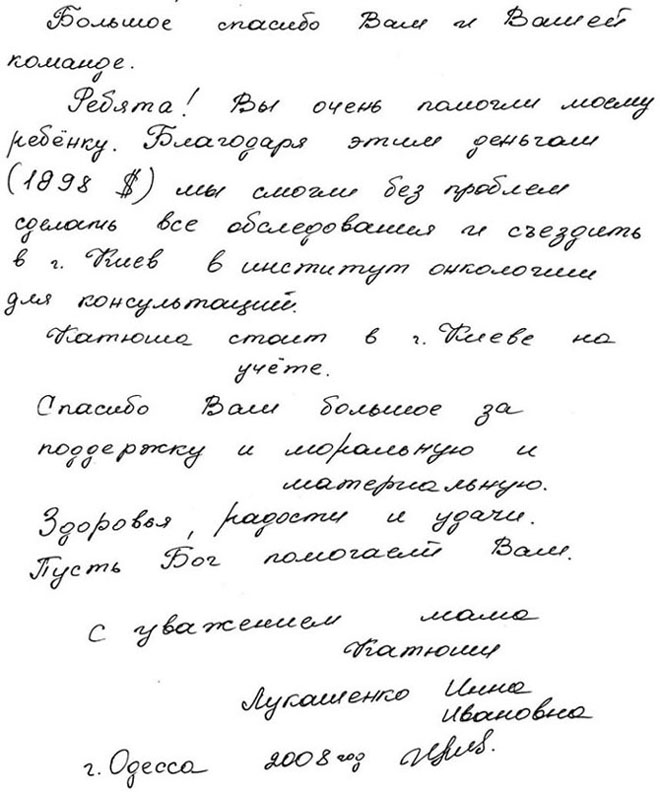 Большое спасибо Вам и Вашей
команде.
Ребята! Вы очень помогли моему
ребёнку. Благодаря этим деньгам
(1898 $) мы смогли без проблем
сделать все обследования и съездить
в г. Киев в институт онкологии
для консультаций.
Катюша стоит в г. Киеве на
учёте.
Спасибо Вам большое за
поддержку и моральную и
материальную.
Здоровья, радости и удачи.
Пусть Бог помогает Вам.
С уважением мама
Катюши
Лукашенко Инна
Ивановна
г. Одесса 2008 год